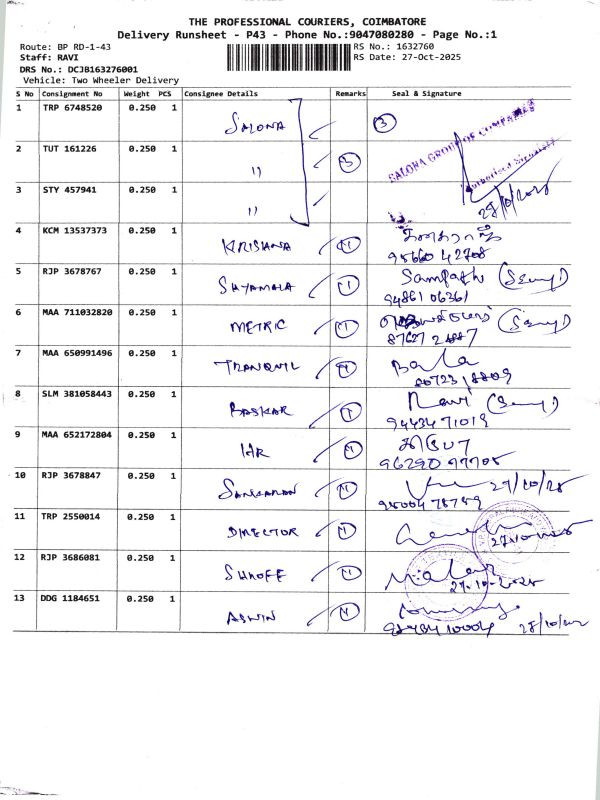 THE PROFESSIONAL COURIERS, COIMBATORE
Delivery Runsheet - P43 - Phone No.:9047080280 - Page No.:1
Route: BP RD-1-43
RS No.: 1632760
Staff: RAVI
RS Date: 27-Oct-2025
DRS No.: DCJB163276001
Vehicle: Two Wheeler Delivery
S No Consignment No Weight PCS Consignee Details Remarks Seal & Signature
1 TRP 6748520 0.250 1 SALONA 3
SALONA GROUP OF COMPANIES
Authorised Signatory
2 TUT 161226 0.250 1 " 3
3 STY 457941 0.250 1 "
4 KCM 13537373 0.250 1 KRISHNA 1
95660 42708
5 RJP 3678767 0.250 1 SHYAMALA 1 Sampath
94861 06361
6 MAA 711032820 0.250 1 METRIC 1
7 MAA 650991496 0.250 1 TRANQUIL Bala
8 SLM 381058443 0.250 1 BASKAR 1 Ravi
94434 71019
9 MAA 652172804 0.250 1 HR
10 RJP 3678847 0.250 1 SANKARAN
11 TRP 2550014 0.250 1 DIRECTOR
12 RJP 3686081 0.250 1 SHROFF
27-10-2025
13 DDG 1184651 0.250 1 ASWIN